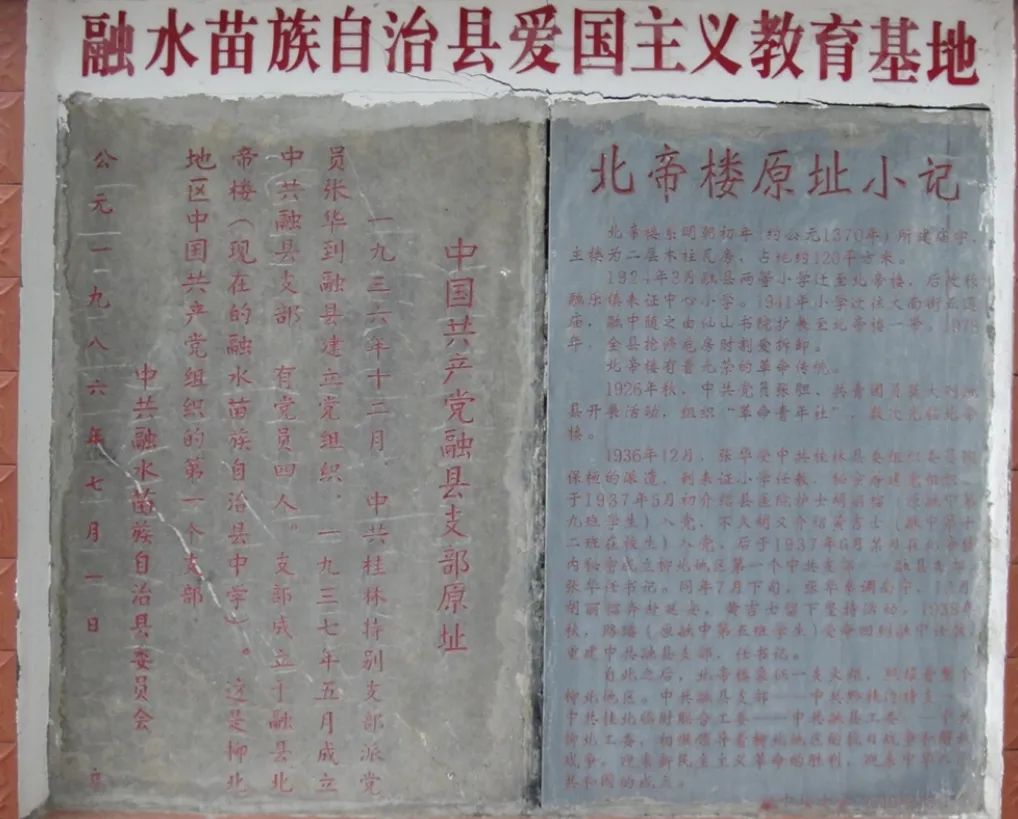 融水苗族自治县爱国主义教育基地
中国共产党融县支部原址
一九三六年十二月，中共桂林特别支部派党
员张华到融县建立党组织，一九三七年五月成立
中共融县支部 有党员四人。支部成立于融县北
帝楼（现在的融水苗族自治县中学）。这是柳北
地区中国共产党组织的第一个支部
中共融水苗族自治县委员会
公元一九八六年七月一日 立
北帝楼原址小记
北帝楼系明朝初年(约公元1370年)所建庙宇，
主楼为二层木柱瓦房，占地约120平方米。
1924年3月融县两等小学迁至北帝楼，后改称
融乐镇表证中心小学。1941年小学改往大南街
庙，融中随之由仙山书院扩展至北帝楼一带。1978
年，全县抢济危房时割爱拆卸。
北帝楼有着光荣的革命传统。
1926年秋，中共党员张胆、共青团员莫大
县开展活动，组织“革命青年社”，数次光临北帝
楼。
1936年12月，张华受中共桂林县委组织委员
保桓的派遣，到表证小学任教，秘密筹建党组织
于1937年5月初介绍县医院护士胡丽榕（原融中第
九班学生）入党，不久胡又介绍黄吉士（融中第十
二班在校生）入党，后于1937年6月某月在北帝楼
内秘密成立柳北地区第一个中共支部——融县支部
张华任书记。同年7月下旬，张华奉调南宁，12月
胡丽榕奔赴延安，黄吉士留下坚持活动，1938年
秋，路璠（原融中第五班学生）受命回到融中任教，
重建中共融县支部，任书记。
自此之后，北帝楼象征一支火炬，照耀着整个
柳北地区。中共融县支部——中共黔桂边特支——
中共桂北临时联合工委——中共融县工委——中共
柳北工委，相继领导着柳北地区的抗日战争和解放
战争，迎来新民主主义革命的胜利，迎来中华人民
共和国的成立。